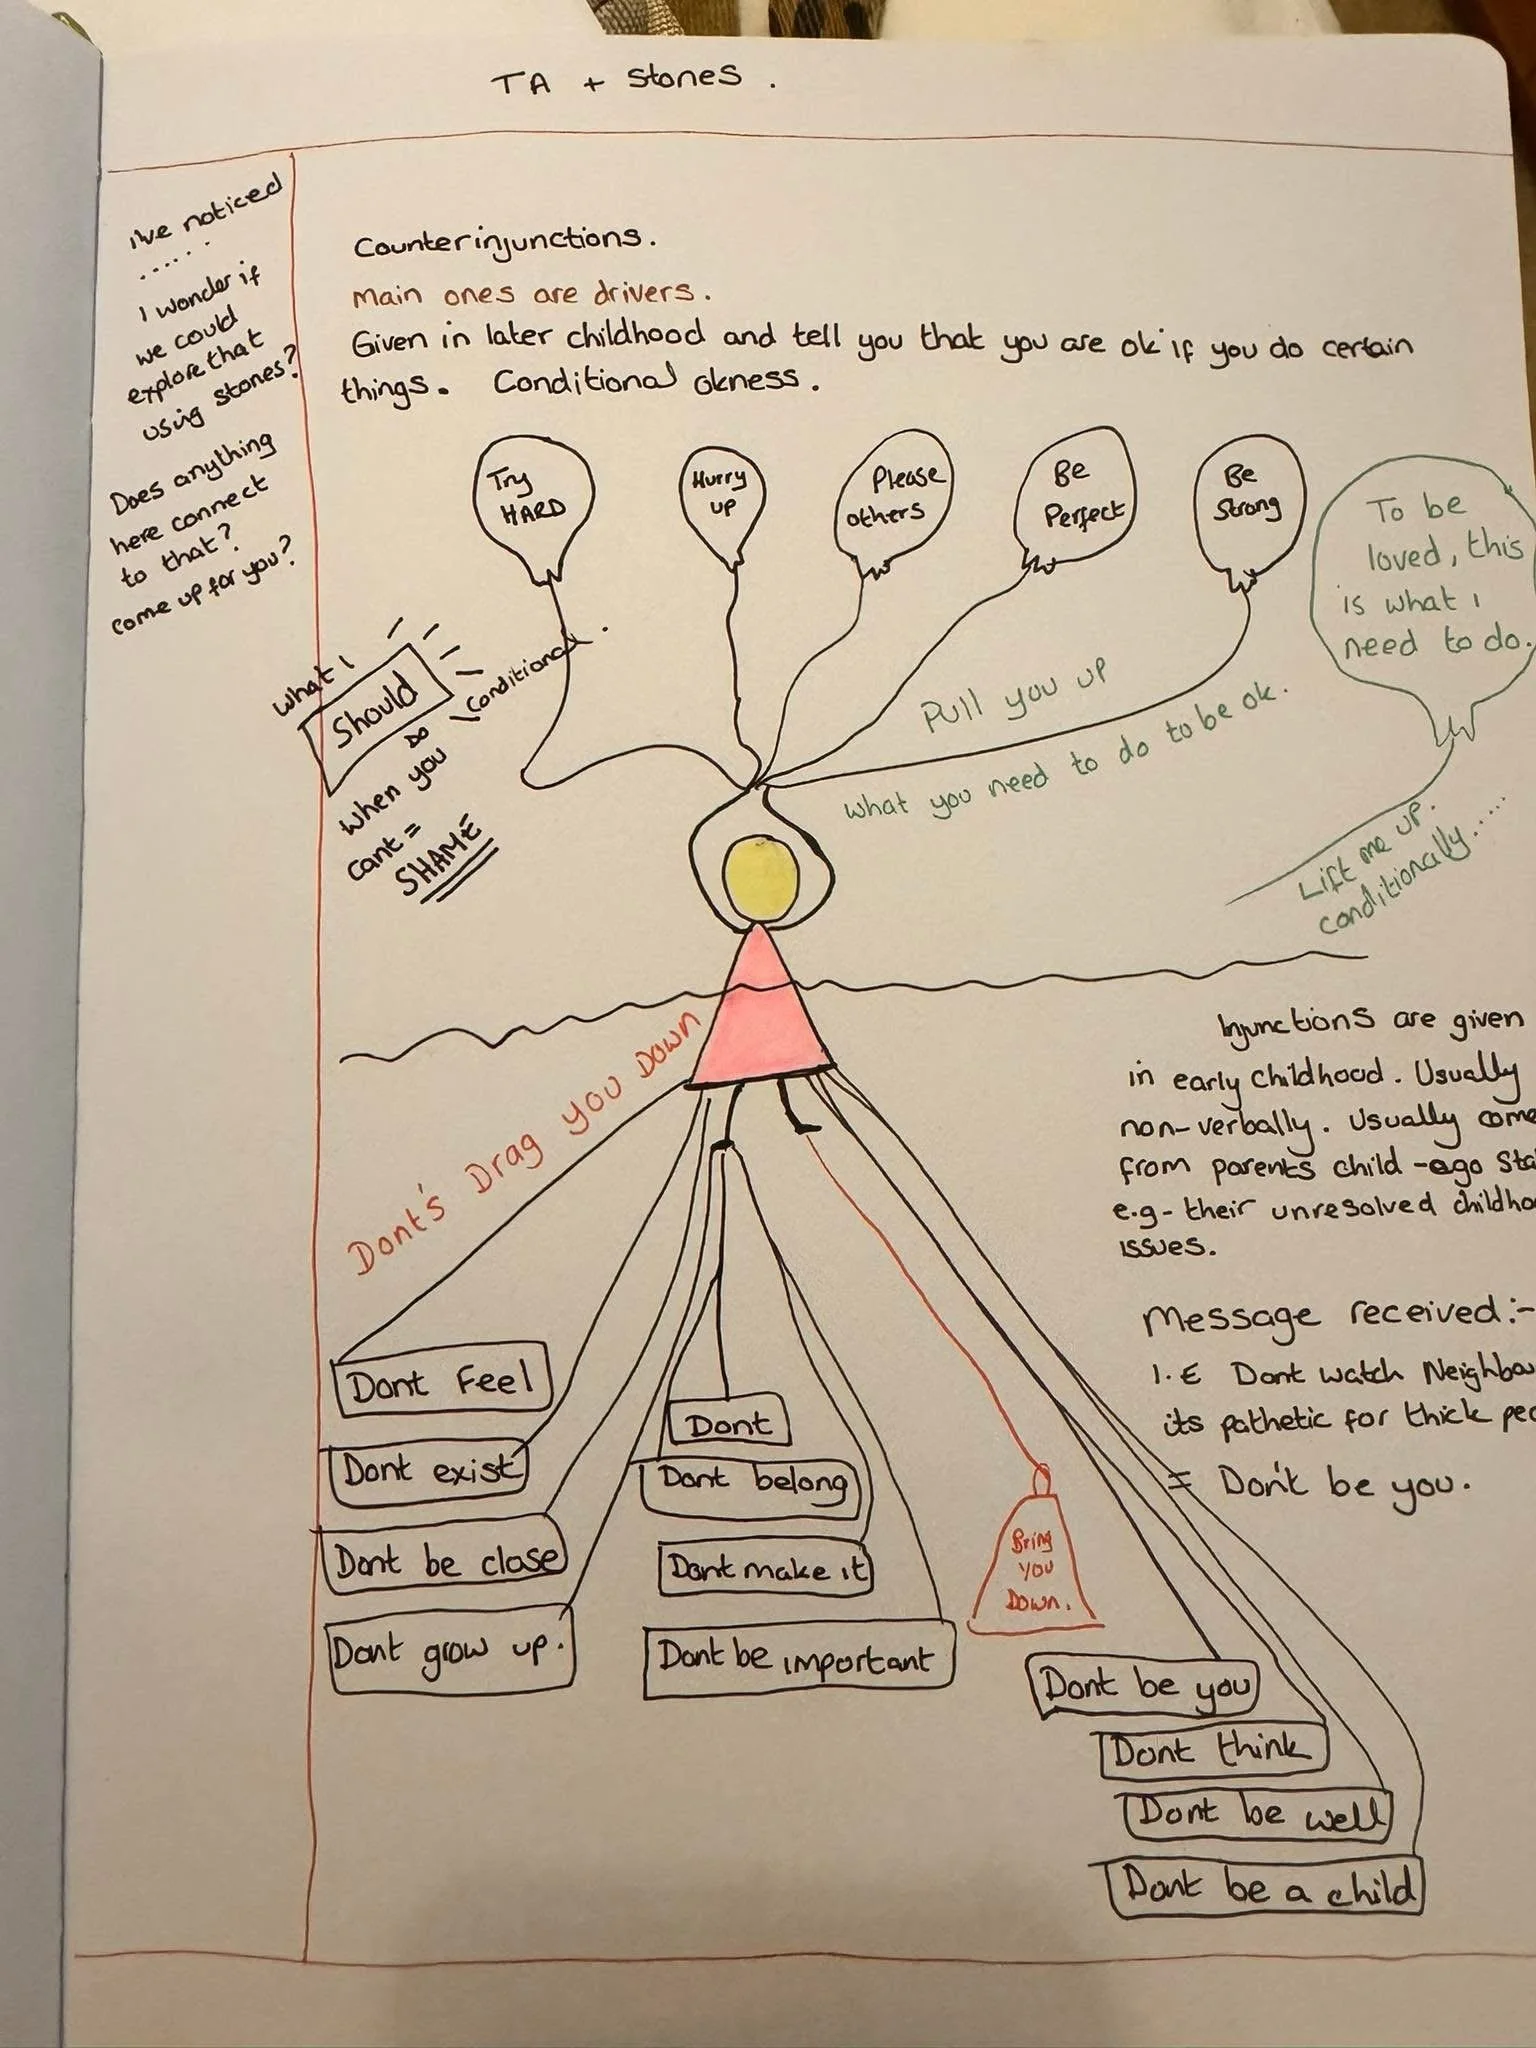 TA + Stones.
i've noticed
.....
I wonder if
we could
explore that
using stones?
Does anything
here connect
to that?
come up for you?
Counterinjunctions.
Main ones are drivers.
Given in later childhood and tell you that you are ok if you do certain
things. Conditional okness.
Try
HARD
Hurry
up
Please
others
Be
Perfect
Be
Strong
To be
loved, this
is what I
need to do.
What I
Should
Do
Conditional.
When you
cant =
SHAME
Pull you up
What you need to do to be ok.
Lift me up.
conditionally.....
Dont's Drag you Down
Injunctions are given
in early childhood. Usually
non-verbally. Usually come
from parents child-ego
e.g - their unresolved
issues.
Message received:-
I.E Dont watch
its pathetic for thick
= Don't be you.
Dont Feel
Dont exist
Dont be close
Dont grow up.
Dont
Dont belong
Dont make it
Dont be important
Bring
You
Down.
Dont be you
Dont think
Dont be well
Dont be a child